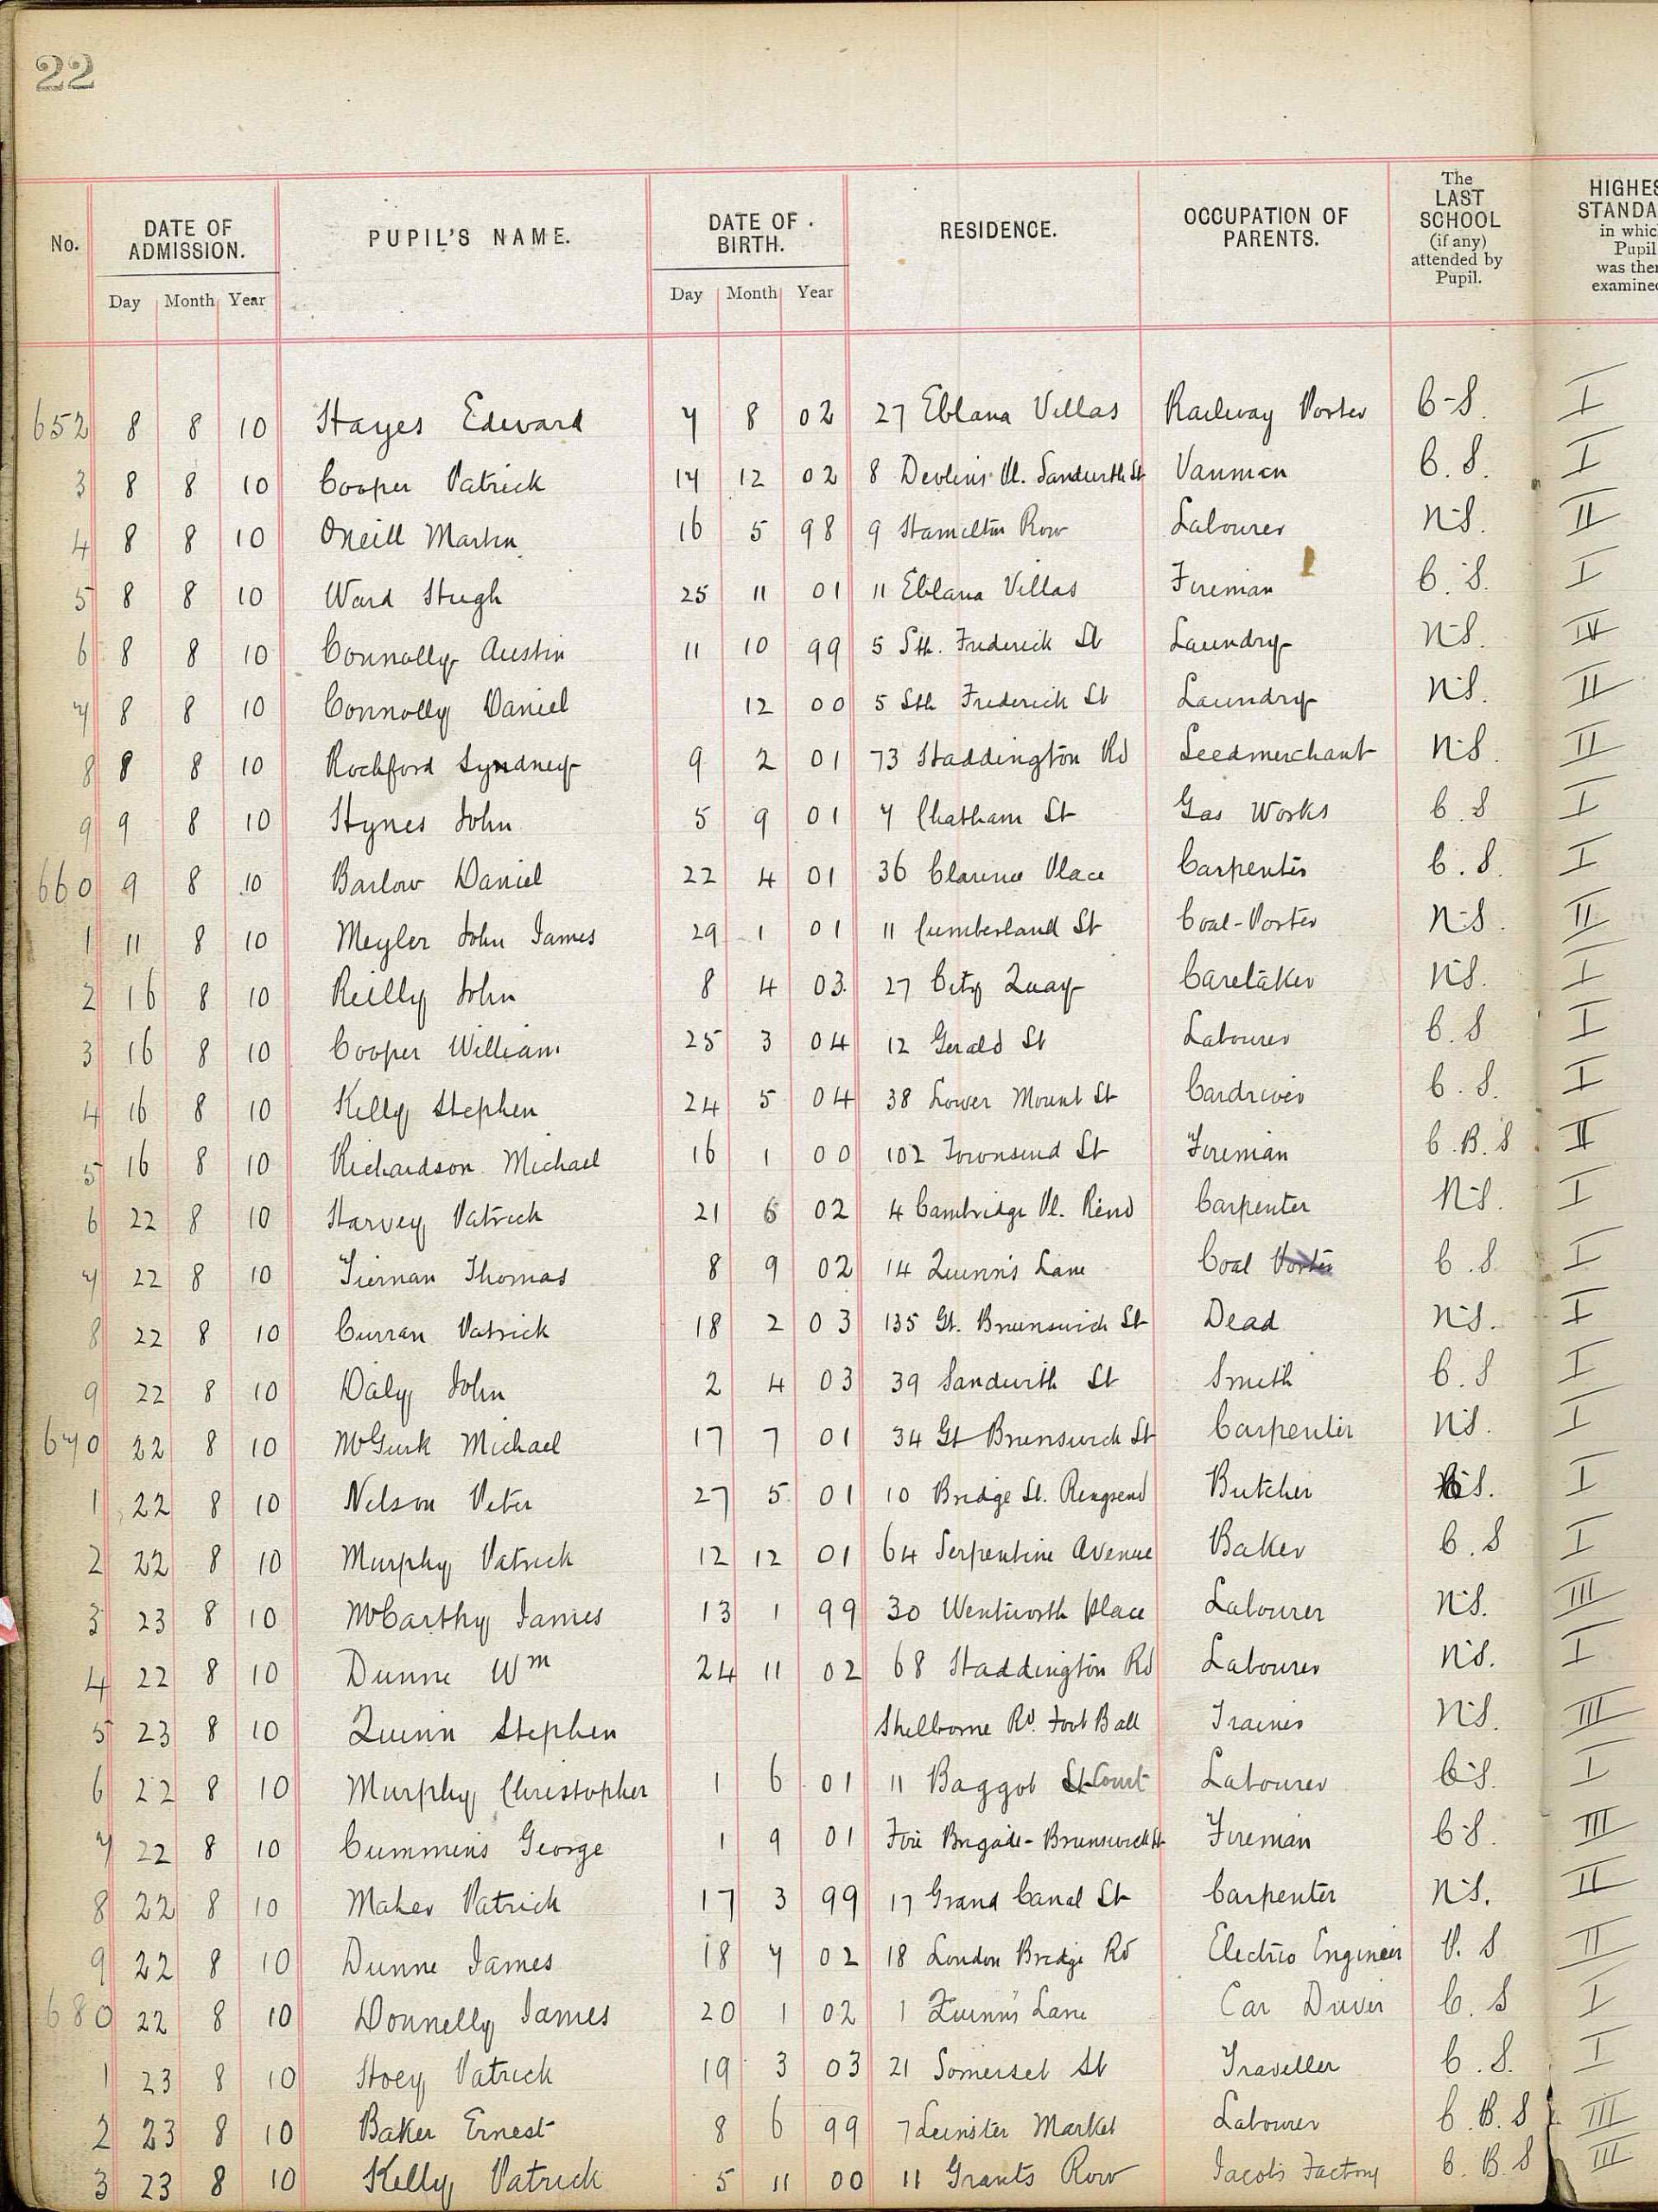 22
No. DATE OF ADMISSION. PUPIL'S NAME. DATE OF BIRTH. RESIDENCE. OCCUPATION OF PARENTS. The LAST SCHOOL (if any) attended by Pupil. HIGHES STANDA in whic Pupil was the examine
Day Month Year Day Month Year
652 8 8 10 Hayes Edward 7 8 02 27 Eblana Villas Railway Porter C-S. I
3 8 8 10 Cooper Patrick 14 12 02 8 Devlins Pl. Sandwith St Vanman C.S. I
4 8 8 10 ONeill Martin 16 5 98 9 Hamilton Row Labourer N.S. II
5 8 8 10 Ward Hugh 25 11 01 11 Eblana Villas Fireman C.S. I
6 8 8 10 Connolly Austin 11 10 99 5 Sth. Frederick St Laundry N.S. IV
7 8 8 10 Connolly Daniel 12 00 5 Sth Frederick St Laundry N.S. II
8 8 8 10 Rochford Syndney 9 2 01 73 Haddington Rd Seedmerchant N.S. II
9 9 8 10 Hynes John 5 9 01 7 Chatham St Gas Works C.S I
660 9 8 10 Barlow Daniel 22 4 01 36 Clarence Place Carpenter C.S. I
1 11 8 10 Meyler John James 29 1 01 11 Cumberland St Coal-Porter N.S. II
2 16 8 10 Reilly John 8 4 03. 27 City Quay Caretaker N.S. I
3 16 8 10 Cooper William 25 3 04 12 Gerald St Labourer C.S I
4 16 8 10 Kelly Stephen 24 5 04 38 Lower Mount St Cardriver C.S. I
5 16 8 10 Richardson Michael 16 1 00 102 Townsend St Fireman C.B.S II
6 22 8 10 Harvey Patrick 21 6 02 4 Cambridge Pl. Rend Carpenter N.S. I
7 22 8 10 Tiernan Thomas 8 9 02 14 Quinn's Lane Coal Porter C.S I
8 22 8 10 Curran Patrick 18 2 03 135 Gt. Brunswick St Dead N.S. I
9 22 8 10 Daly John 2 4 03 39 Sandwith St Smith C.S I
670 22 8 10 McGurk Michael 17 7 01 34 Gt Brunswick St Carpenter N.S. I
1 22 8 10 Nelson Peter 27 5 01 10 Bridge St. Ringsend Butcher S. I
2 22 8 10 Murphy Patrick 12 12 01 64 Serpentine Avenue Baker C.S I
3 23 8 10 McCarthy James 13 1 99 30 Wentworth Place Labourer N.S. III
4 22 8 10 Dunne Wm 24 11 02 68 Haddington Rd Labourer N.S. I
5 23 8 10 Quinn Stephen Shelborne Rd. Foot Ball Trainer N.S. III
6 22 8 10 Murphy Christopher 1 6 01 11 Baggot Court Labourer C.S. I
7 22 8 10 Cummins George 1 9 01 Fire Brigade - Brunswick St Fireman C.S. III
8 22 8 10 Maher Patrick 17 3 99 17 Grand Canal St Carpenter N.S. II
9 22 8 10 Dunne James 18 7 02 18 London Bridge Rd Electric Engineer P.S II
680 22 8 10 Donnelly James 20 1 02 1 Quinn's Lane Car Driver C.S I
1 23 8 10 Hoey Patrick 19 3 03 21 Somerset St Traveller C.S. I
2 23 8 10 Baker Ernest 8 6 99 7 Leinster Market Labourer C.B.S III
3 23 8 10 Kelly Patrick 5 11 00 11 Grants Row Jacob's Factory C.B.S III